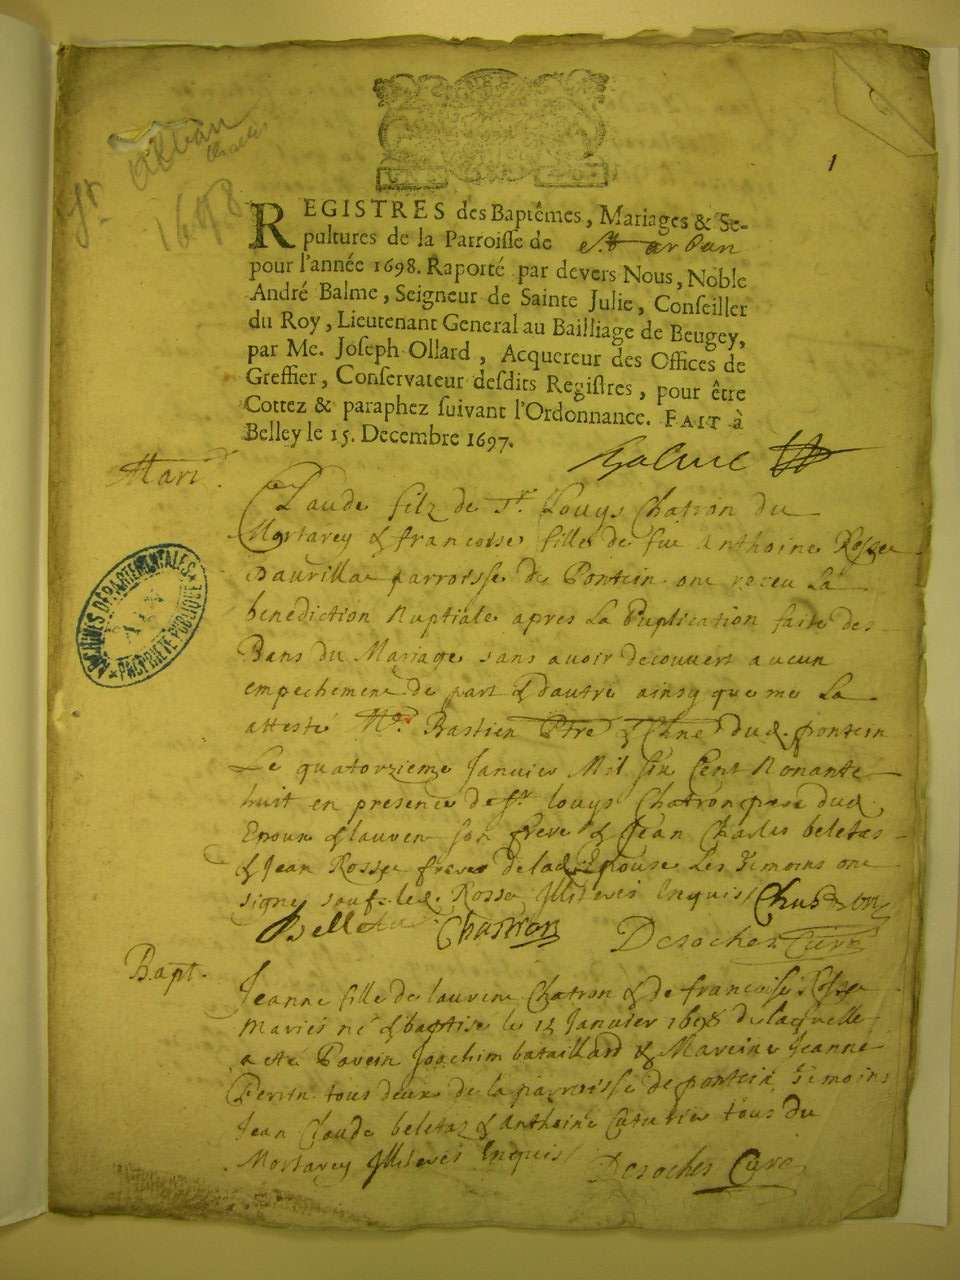 St Alban
1698
1
REGISTRES des Baptêmes, Mariages & Se-
pultures de la Parroisse de St arban
pour l'année 1698. Raporté par devers Nous, Noble
André Balme, Seigneur de Sainte Julie, Conseiller
du Roy, Lieutenant General au Bailliage de Beugey,
par Me. Joseph Ollard, Acquereur des Offices de
Greffier, Conservateur desdits Registres, pour être
Cottez & paraphez suivant l'Ordonnance. FAIT à
Belley le 15. Decembre 1697.
Balme
Mari
ARCHIVES DEPARTEMENTALES
AIN
PROPRIETE PUBLIQUE
Claude filz de Sr. Louys Chatron du
Mortarey & francoise fille de fue Anthoine
parroisse de Pontein ont receu La
benediction Nuptiale apres La Puplication faite des
Bans du Mariage sans avoir decouvert aucun
empechement de part & dautre ainsy que me La
attesté Bastien Ptre & dud. pontein
Le quatorzieme Janvier Mil six Cent Nonante
huit en presence de Sr louys Chatron pere dud.
Epoux & lauren son frere & Jean Charles beletas
& Jean Rosse frere de lad. Epouse Les Temoins ont
signe sauf led. Rosse Illiteres Enquis Chastron
Chastron Desoches Curé
Bapt.
Jeanne fille de lauren Chatron & de francoise
Mariés né & baptise le Janvier 1698 de laquelle
a eté Parein Joachim bataillard & Mareine Jeanne
Perrin tous deux de la parroisse de pontein Temoins
Jean Claude beletas & anthoine Cuturier tous du
Mortarey Illiteres Enquis Desoches Curé